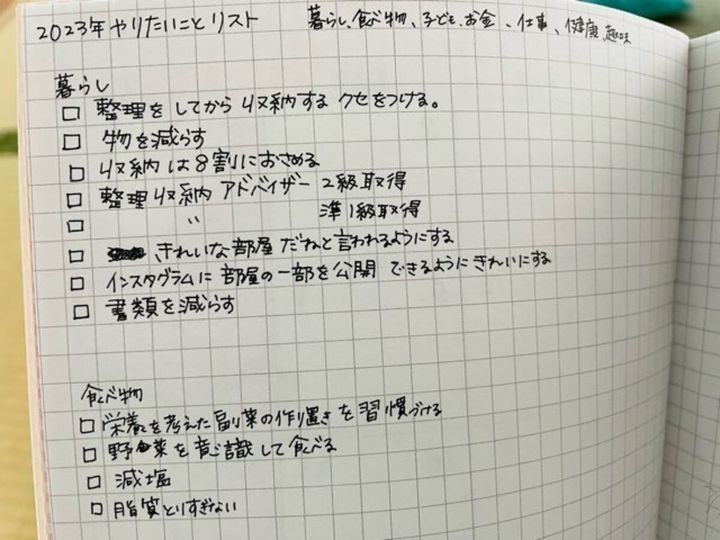 2023年やりたいことリスト 暮らし、食べ物、子ども、お金、仕事、健康、趣味
暮らし
□ 整理をしてから収納するクセをつける。
□ 物を減らす
□ 収納は8割におさめる
□ 整理収納アドバイザー 2級取得
□ 〃 準1級取得
□ きれいな部屋だねと言われるようにする
□ インスタグラムに部屋の一部を公開できるようにきれいにする
□ 書類を減らす
食べ物
□ 栄養を考えた副菜の作り置きを習慣づける
□ 野菜を意識して食べる
□ 減塩
□ 脂質とりすぎない